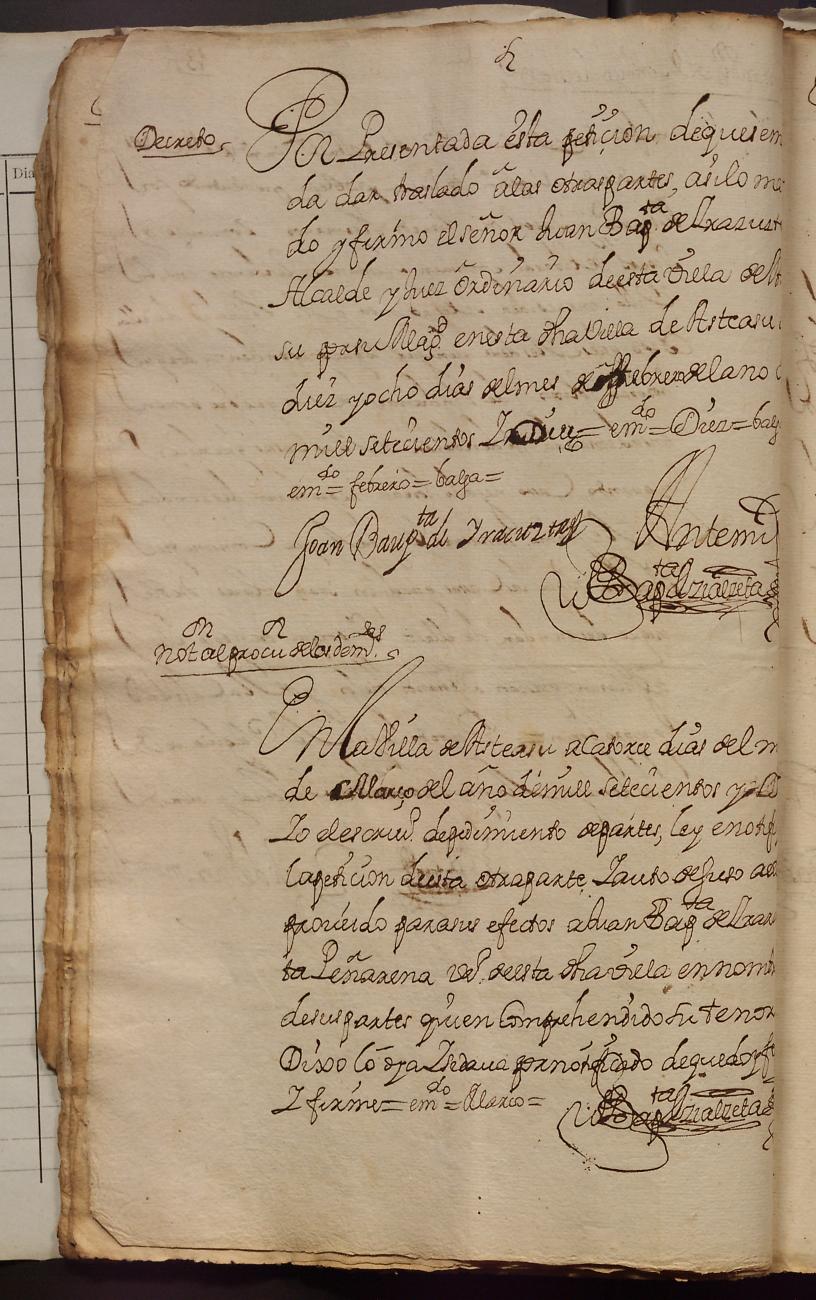 Decreto,
Por Presentada esta petiçion de que se m
da dar traslado a las otras partes, asi lo m
do y firmo el señor Juan Bapta de Yrazust
Alcalde y Juez Ordinario de esta Villa
su por su Magd en esta dha Villa de Asteasu
diez y ocho dias del mes de febrero del año
mill setecientos Y Diez = emdo = Diez = balga
emdo = febrero = balga =
Joan Baupta di Yracuztay
Ante mi
Bapta de Zialzeta
Noton al procuon de los demdes
En la Villa de Asteasu a Catorce dias del m
de Março del año de mill setecientos y D
Yo el escrivo de pedimiento de partes, ley e notif
la peticion de esta otra parte, Y auto de suso
proveido para sus efectos a Juan Bapta de Yraz
ta Peñarena vezo de esta dha Villa en nomb
de sus partes quien Comprehendido su tenor
Dixo lo oya Y se dava por notificado de que doy fe
Y firme = emdo = Março =
Bapta de Zialzeta